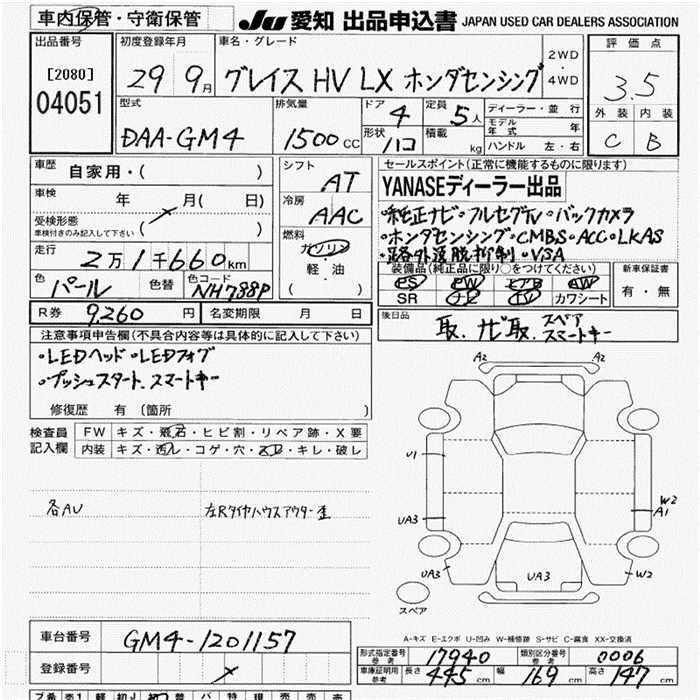 車内保管・守衛保管
JU 愛知 出品申込書 JAPAN USED CAR DEALERS ASSOCIATION
出品番号 初度登録年月 車名・グレード 2WD・4WD 評価点
[2080]
04051
29 9月 グレイス HV LX ホンダセンシング
3.5
型式 排気量 ドア 4 定員 5人 ディーラー・並行
外装 内装
DAA-GM4 1500CC 形状 ハコ 積載 kg モデル年式 年
ハンドル 左・右
C B
車歴 自家用・( )
シフト AT
セールスポイント(正常に機能するものに限ります)
車検 年 月( 日)
冷房 AAC
YANASEディーラー出品
受検形態
車検付きのみ記入して下さい ( )
・純正ナビ・フルセグTV・バックカメラ
・ホンダセンシング・CMBS・ACC・LKAS
・路外逸脱抑制・VSA
走行 2万1千660km
燃料 ガソリン
軽・油
( )
色 パール 色替 色コード NH788P
装備品(純正品に限り○をつけてください) 新車保証書
PS PW エアB AW
SR ナビ TV カワシート
有・無
R券 9,260円 名変期限 月 日
後日品 取.ナビ取.スペアスマートキー
注意事項申告欄(不具合内容等は具体的に記入して下さい)
・LEDヘッド・LEDフォグ
・プッシュスタート.スマートキー
修復歴 有 (箇所 )
検査員記入欄
FW キズ・飛石・ヒビ割・リペア跡・X要
内装 キズ・汚れ・コゲ・穴・スレ・キレ・破レ
各AU 左Rタイヤハウスアウター歪
A2 A2
U1
UA3
W2
A1
UA3 UA3 W2
スペア
A-キズ E-エクボ U-凹み W-補修跡 S-サビ C-腐食 XX-交換済
車台番号 GM4-1201157
登録番号
形式指定番号 参考 17940 類別区分番号 参考 0006
車庫証明用 参考 長さ 445cm 幅 169cm 高さ 147cm